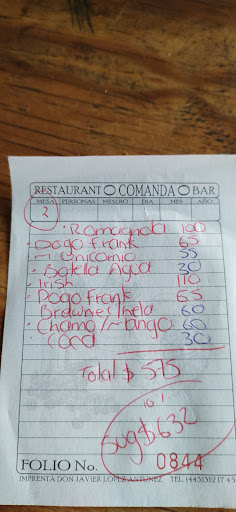 RESTAURANT COMANDA BAR
MESA PERSONAS MESERO DIA MES AÑO
2
· Romagnola 100
· Dogo Frank 65
Unicornio 55
· Botella Agua 30
· Irish 110
· Dogo Frank 65
Brownie/hela 60
· Chamo/Mango 60
· Coca 30
Total $ 575
10%
Sug $ 632
FOLIO No. 0844
IMPRENTA DON JAVIER LOPEZ ANTUNEZ TEL. (443)312 17 45